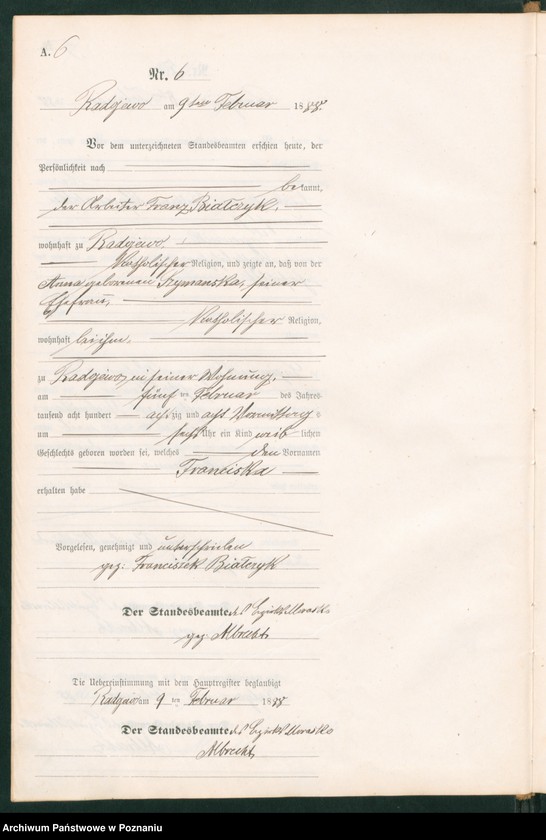 A. 6
Nr. 6
Radojewo am 9ten Februar 1888.
Vor dem unterzeichneten Standesbeamten erschien heute, der
Persönlichkeit nach
bekannt,
der Arbeiter Franz Białczyk,
wohnhaft zu Radojewo
katholischer Religion, und zeigte an, daß von der
Anna geborenen Szymanska, seiner
Ehefrau,
katholischer Religion,
wohnhaft bei ihm,
zu Radojewo, in seiner Wohnung,
am fünften Februar des Jahres
tausend acht hundert achtzig und acht Vormittags
um sechs Uhr ein Kind weiblichen
Geschlechts geboren worden sei, welches den Vornamen
Franciska
erhalten habe
Vorgelesen, genehmigt und unterschrieben
gez: Franciscek Białczyk
Der Standesbeamte des Bezirks Morasko
gez: Albrecht
Die Uebereinstimmung mit dem Hauptregister beglaubigt
Radojewo am 9 ten Februar 1888
Der Standesbeamte des Bezirks Morasko
Albrecht
Archiwum Państwowe w Poznaniu